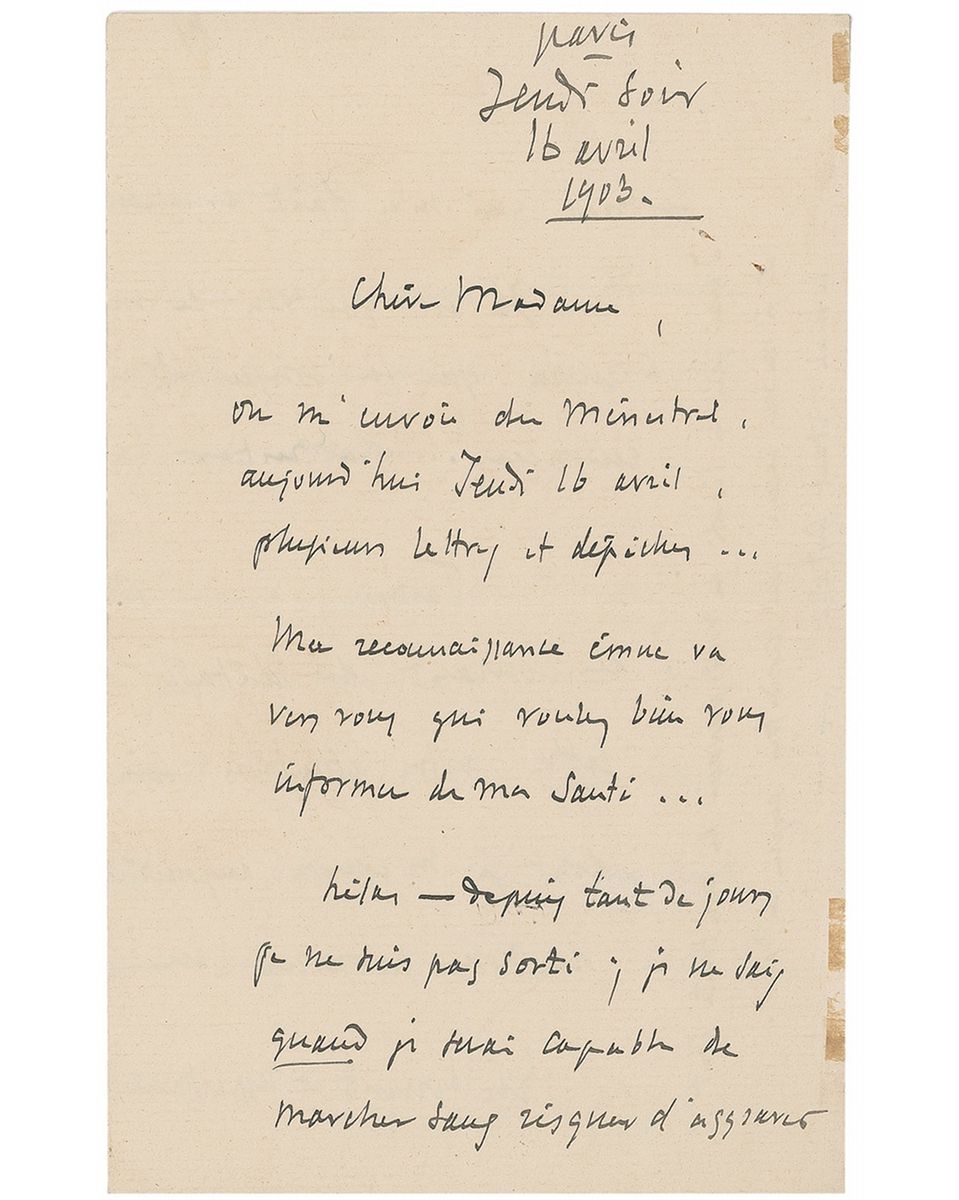 paris
Jeudi Soir
16 avril
1903.
Chère Madame,
on m'envoie du Ménestrel,
aujourd'hui Jeudi 16 avril,
plusieurs lettres et dépêches ...
Ma reconnaissance émue va
vers vous qui voulez bien vous
informer de ma Santé ...
hélas — depuis tant de jours
je ne suis pas sorti ; je ne sais
quand je serai capable de
marcher sans risquer d'aggraver